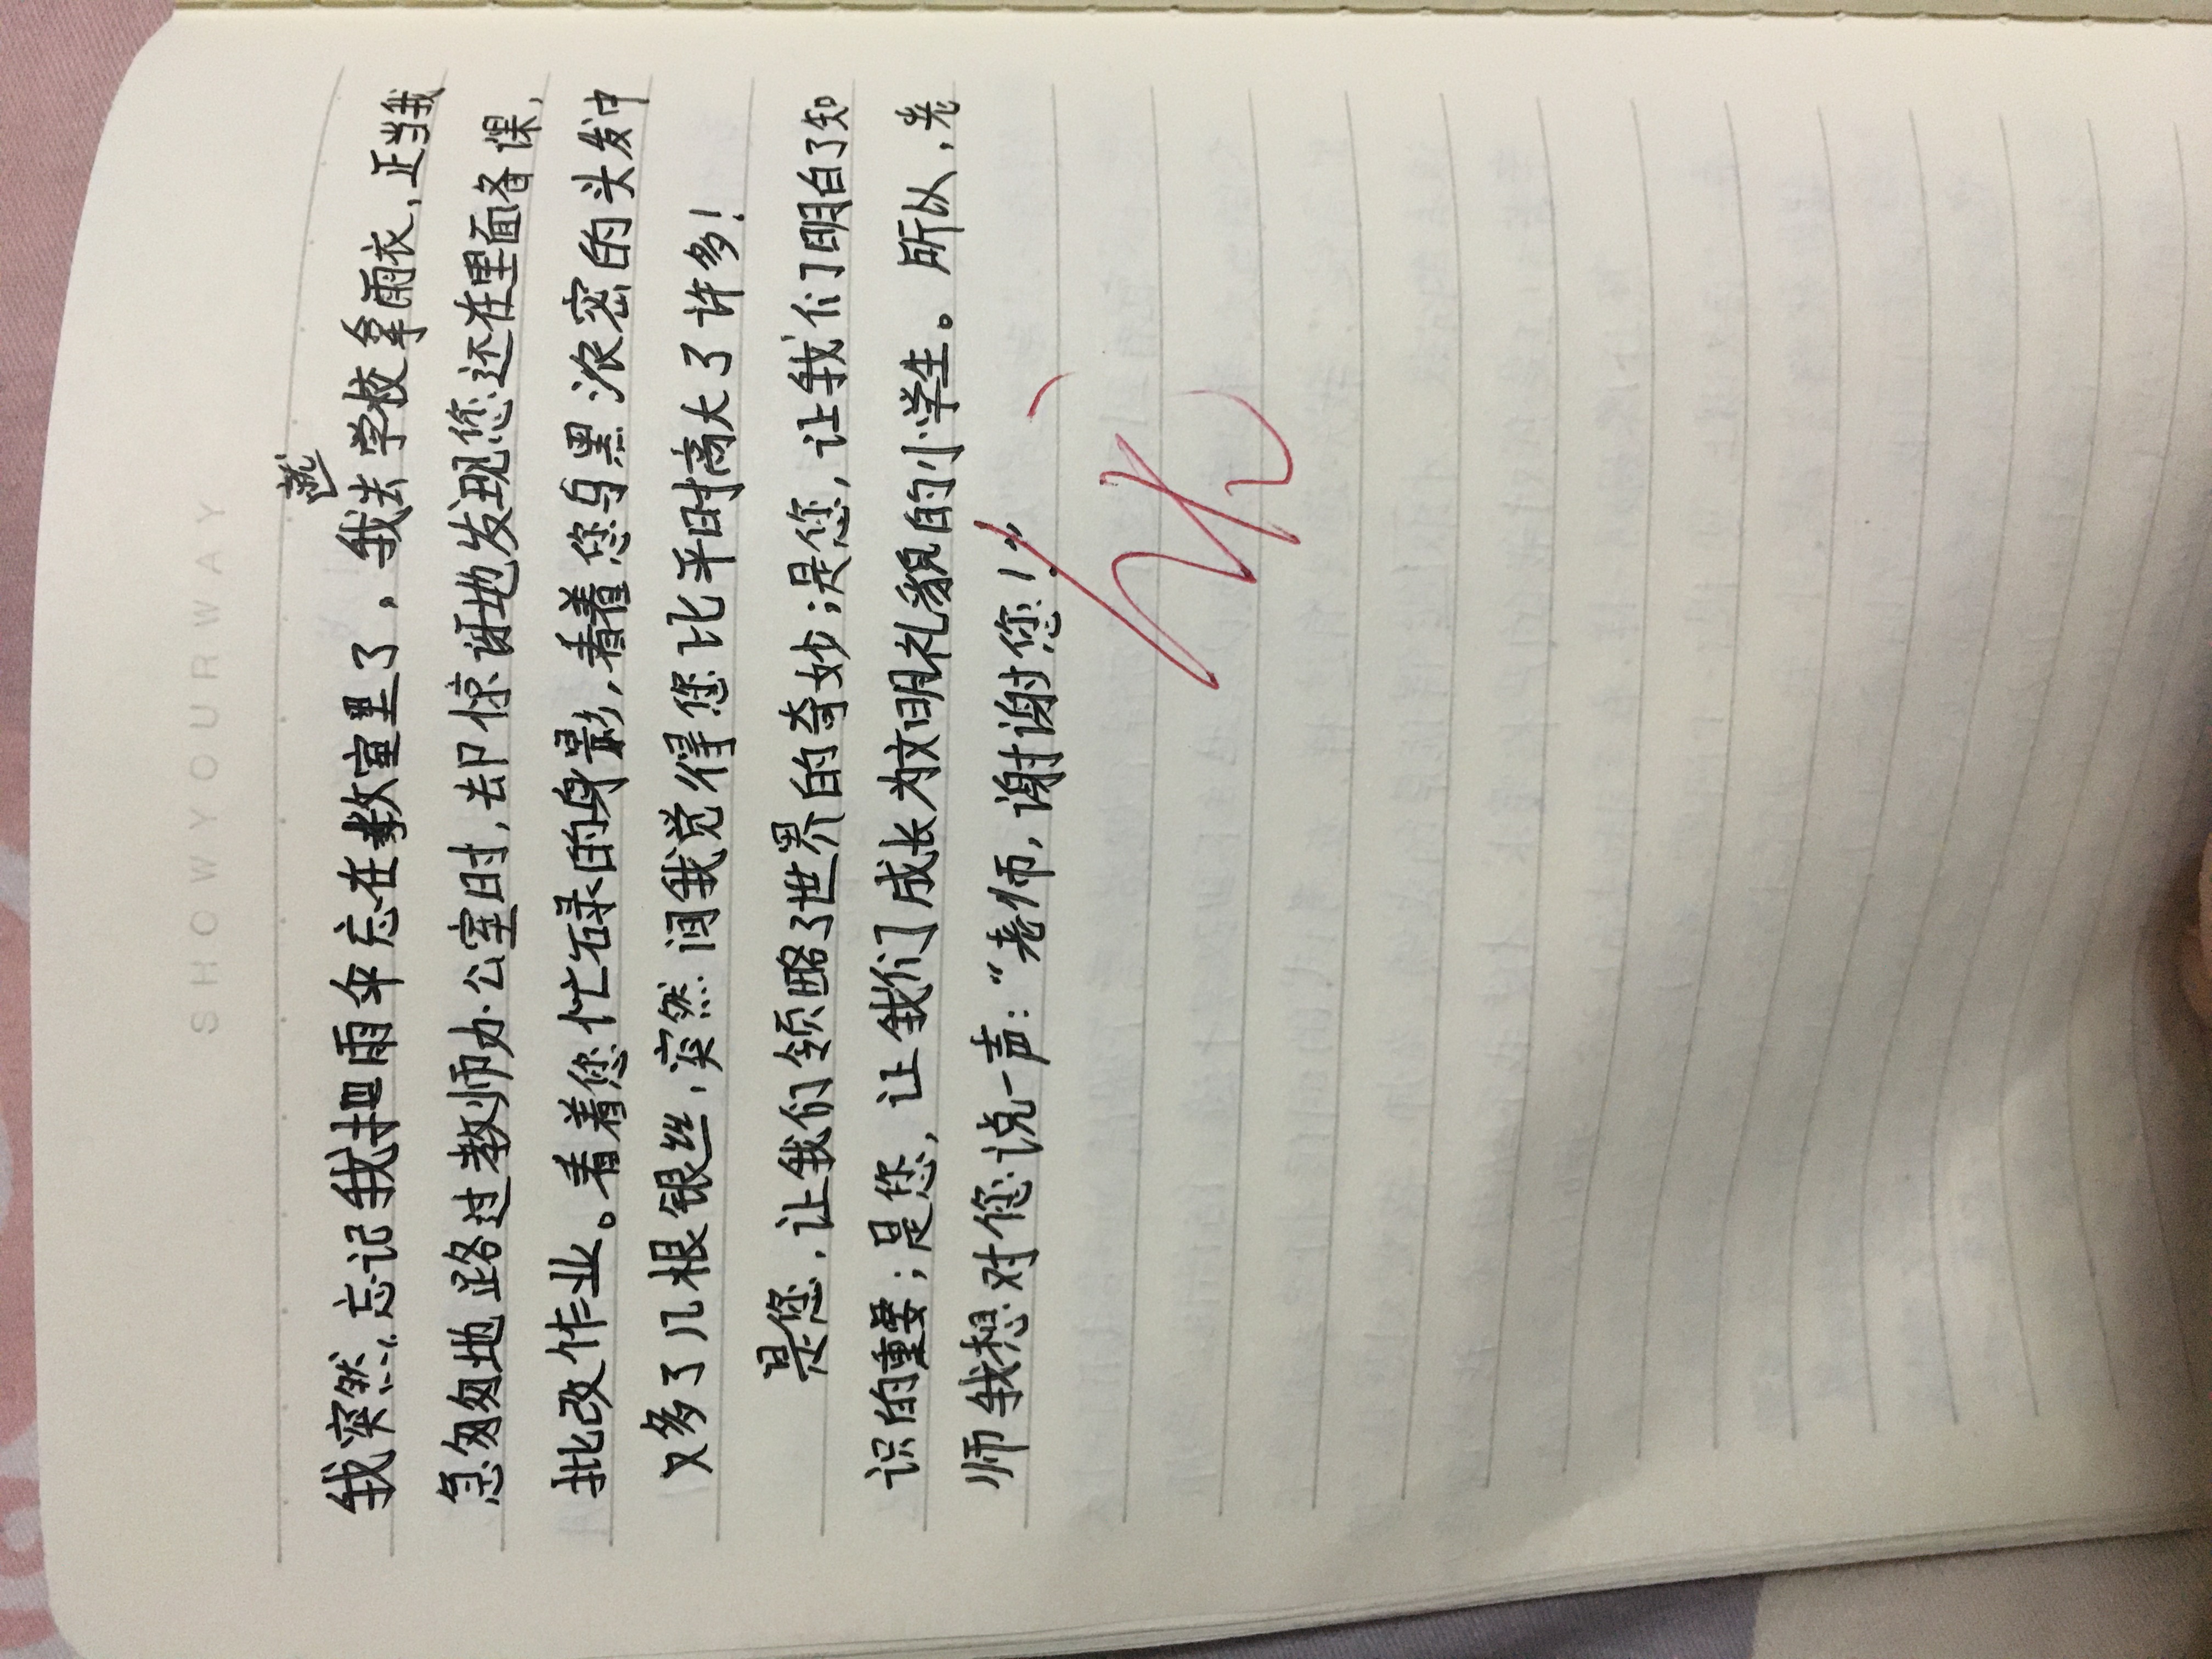 SHOW YOUR WAY
就
我突然忘记我把雨伞忘在教室里了，我去学校拿雨衣，正当我
急匆匆地路过教师办公室时，却惊讶地发现您还在里面备课，
批改作业。看着您忙碌的身影，看着您乌黑浓密的头发中
又多了几根银丝，突然间我觉得您比平时高大了许多！
是您，让我们领略了世界的奇妙；是您，让我们明白了知
识的重要；是您，让我们成长为文明礼貌的小学生。所以，老
师我想对您说一声：“老师，谢谢您！”